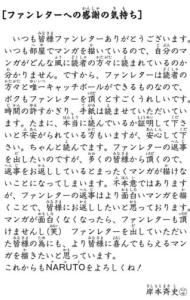 [ファンレターへの感謝の気持ち]
いつも皆様ファンレターありがとうございます。
いつも部屋でマンガを描いているので、自分のマ
ンガがどんな風に読者の方々に読まれているのか
分かりません。ですから、ファンレターは読者の
方々と唯一キャッチボールができるものなので、
ボクもファンレターを頂くとすごくうれしいです。
時間の許すかぎり、手紙は読ませていただいてい
ます。たまに、本当に読んでいるか証明して下さ
いと不安がられている方もいますが、安心して下
さい。ちゃんと読んでます。ファンレターの返事
を出したいのですが、多くの皆様から頂くので、
返事をお返ししているとまったくマンガが描けな
いことになってしまいます。不本意ではあります
が、ファンレターの返事はより面白いマンガを描
くことで、皆様にお返ししたいと思っております。
マンガが面白くなくなったら、ファンレターも頂
けませんし（笑） ファンレターを出していただい
た皆様の為にも、より皆様に喜んでもらえるマン
ガを描きたいと思っています。
これからもNARUTOをよろしくね！
岸本斉史